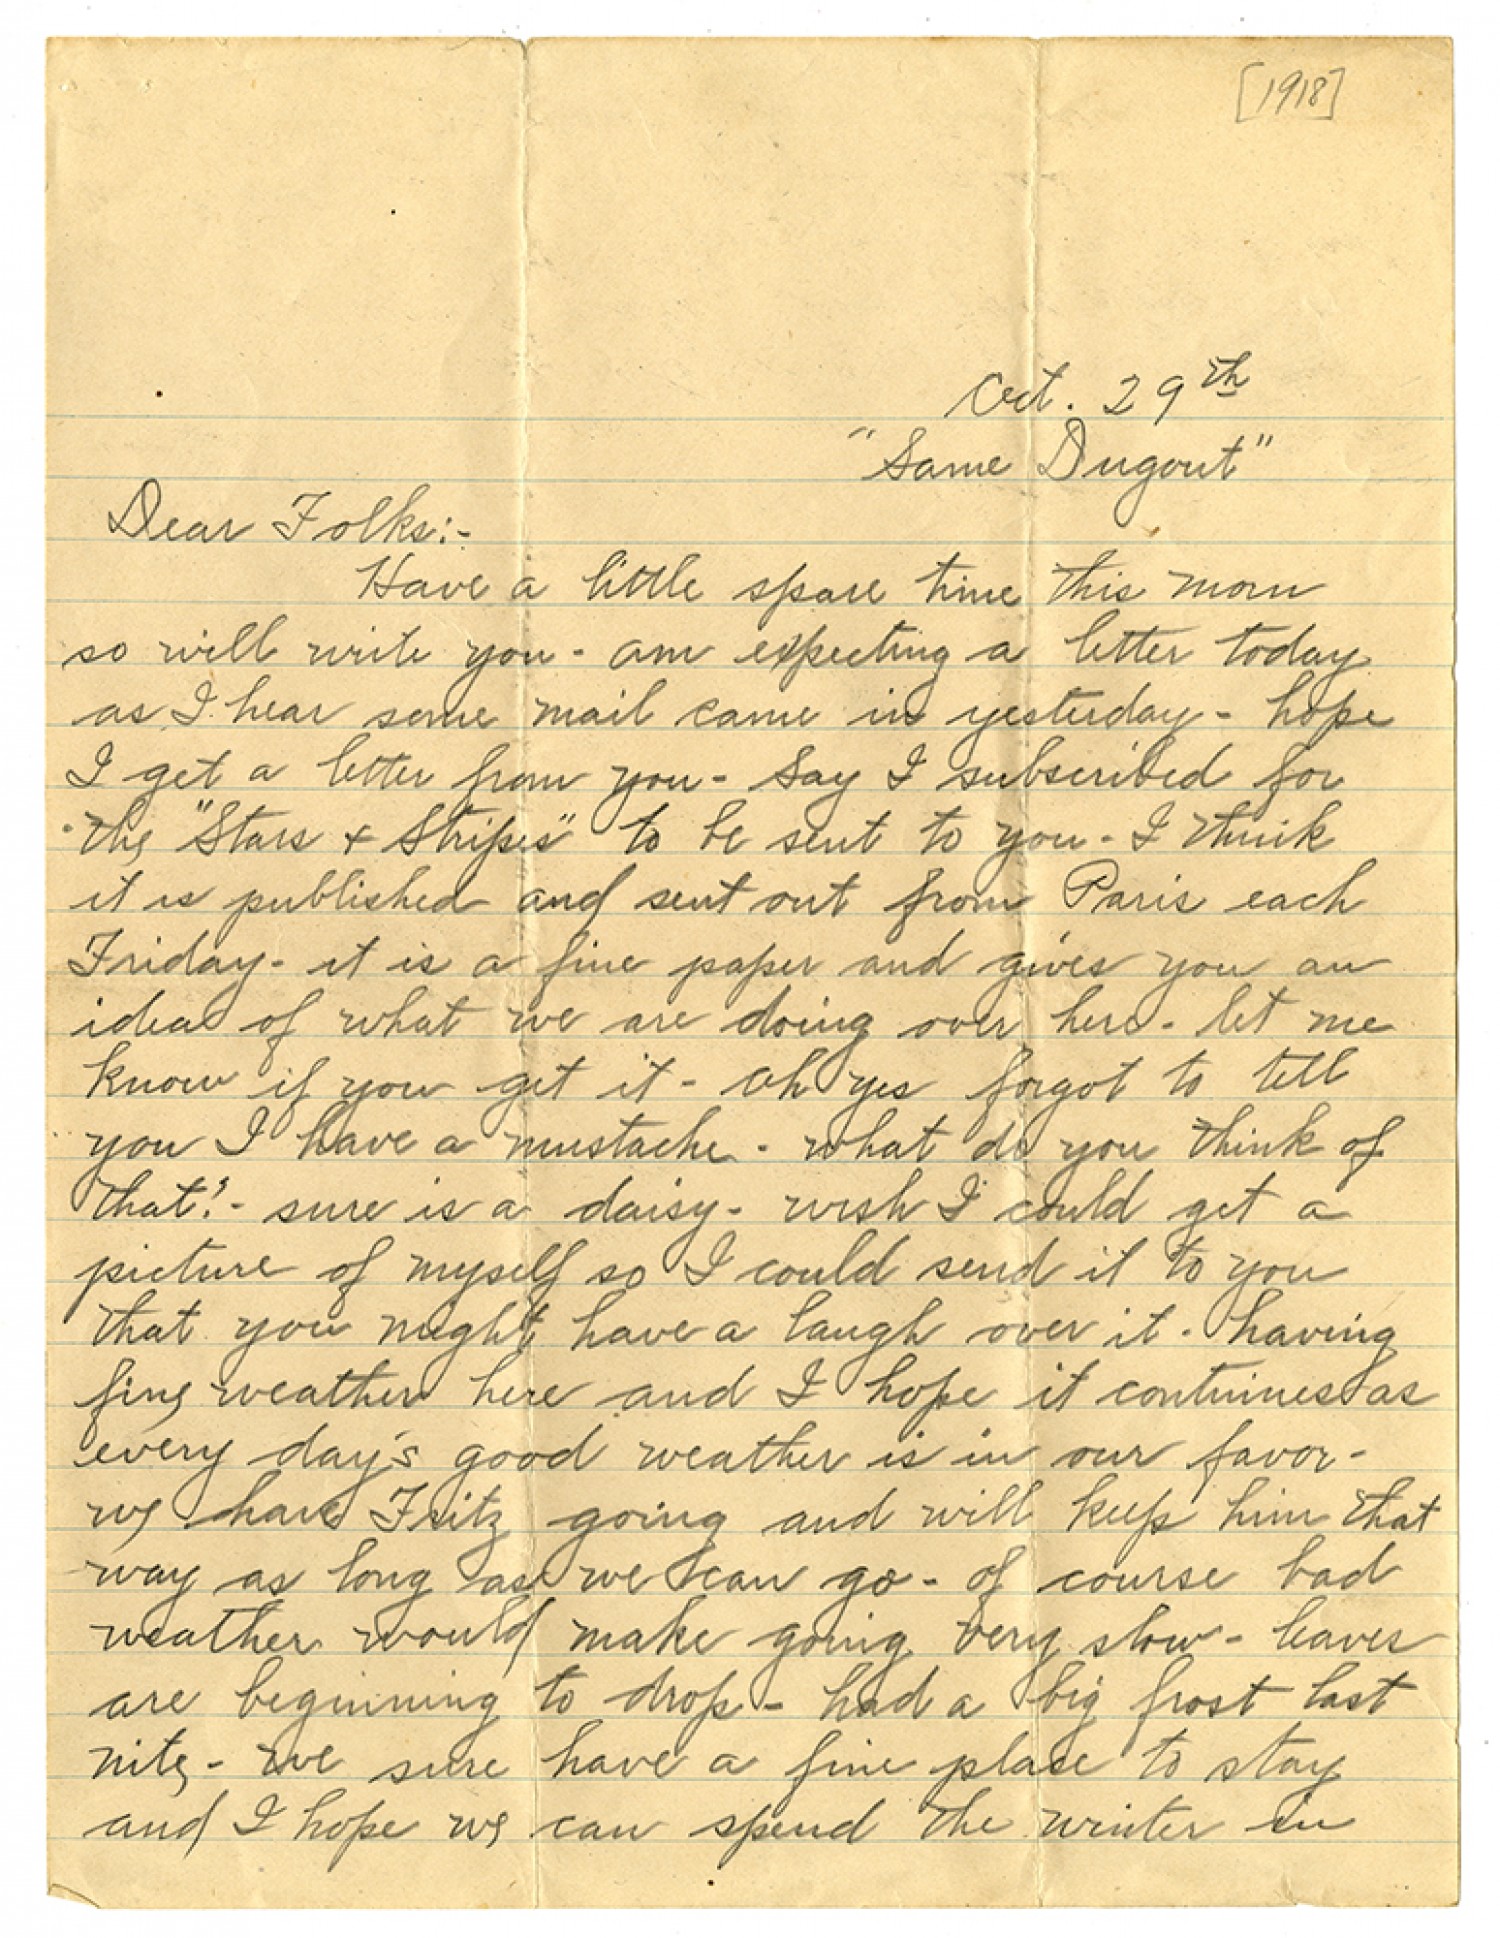 [1918]
Oct. 29th
"Same Dugout"
Dear Folks:-
Have a little spare time this morn
so will write you - am expecting a letter today
as I hear some mail came in yesterday - hope
I get a letter from you - Say I subscribed for
the "Stars + Stripes" to be sent to you - I think
it is published and sent out from Paris each
Friday - it is a fine paper and gives you an
idea of what we are doing over here - let me
know if you get it - oh yes forgot to tell
you I have a mustache - what do you think of
that? - sure is a daisy - wish I could get a
picture of myself so I could send it to you
that you might have a laugh over it - having
fine weather here and I hope it continues as
every day's good weather is in our favor -
we have Fritz going and will keep him that
way as long as we can go - of course bad
weather would make going very slow - leaves
are beginning to drop - had a big frost last
nite - we sure have a fine place to stay
and I hope we can spend the winter in